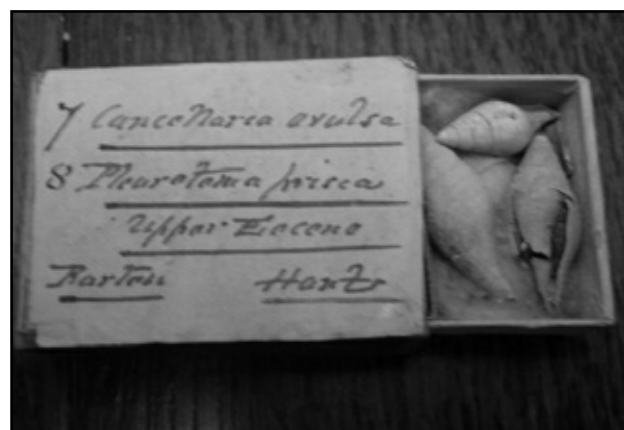 7 Cancellaria evulsa
8 Pleurotoma prisca
Upper Eocene
Barton Hants